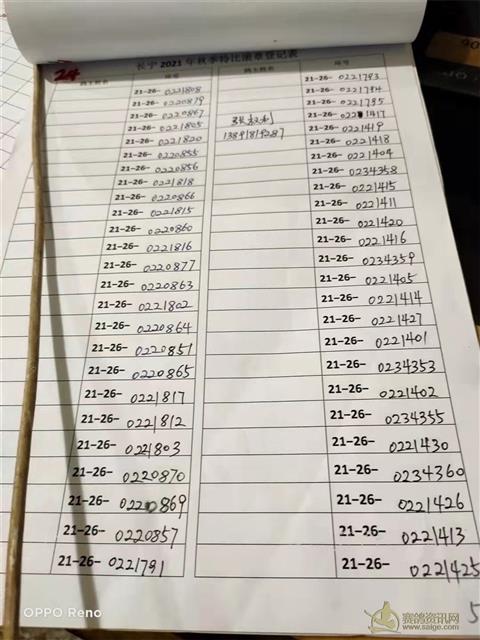 24
长宁2021年秋季特比滴章登记表
鸽主姓名 环号 鸽主姓名 环号
21-26-0221808
21-26-0220819
21-26-0220867
21-26-0221805
21-26-0221820
21-26-0220855
21-26-0220856
21-26-0221818
21-26-0220866
21-26-0221815
21-26-0220860
21-26-0221816
21-26-0220877
21-26-0220863
21-26-0221802
21-26-0220864
21-26-0220851
21-26-0220865
21-26-0221817
21-26-0221812
21-26-0221803
21-26-0220870
21-26-0220869
21-26-0220857
21-26-0221791
21-26-0221793
21-26-0221794
21-26-0221795
21-26-0221417
21-26-0221419
21-26-0221418
21-26-0221404
21-26-0234358
21-26-0221415
21-26-0221411
21-26-0221420
21-26-0221416
21-26-0234359
21-26-0221405
21-26-0221414
21-26-0221427
21-26-0221401
21-26-0234353
21-26-0221402
21-26-0234355
21-26-0221430
21-26-0234360
21-26-0221426
21-26-0221413
21-26-0221425
5
OPPO Reno
赛鸽资讯网
www.saige.com